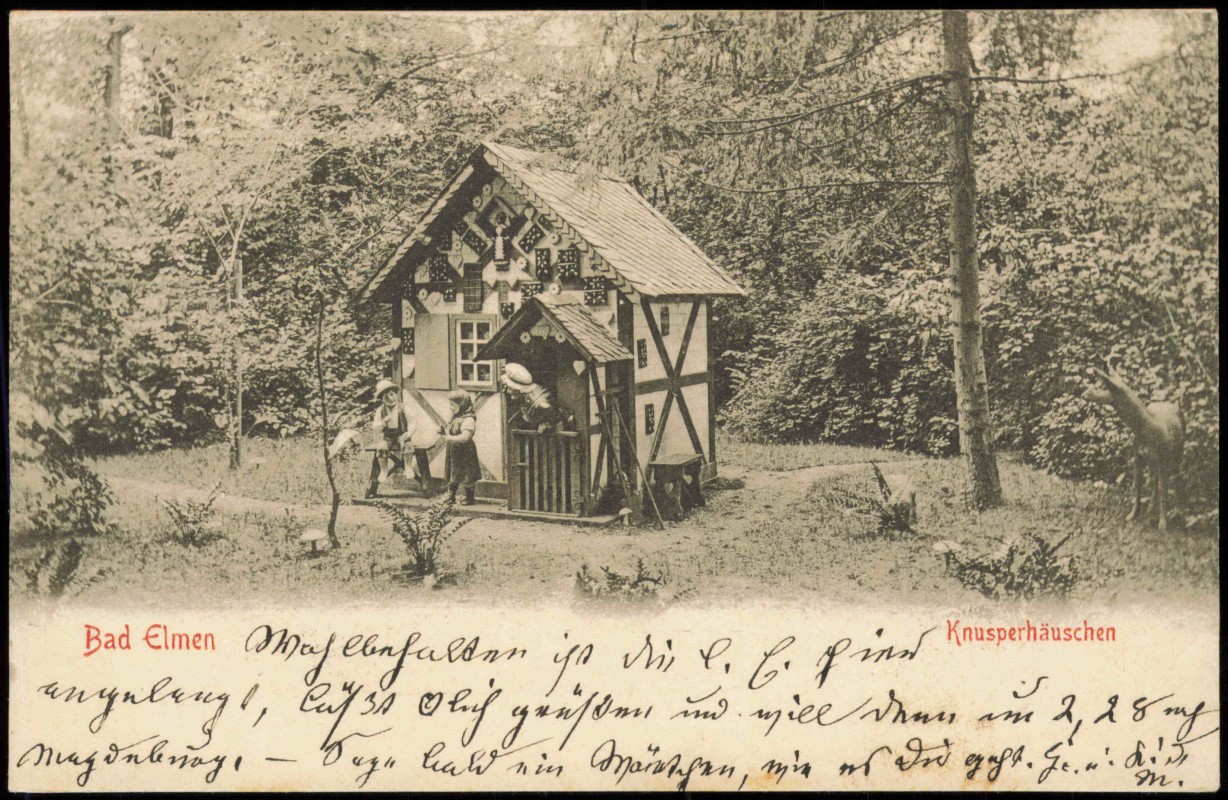 Bad Elmen
Knusperhäuschen
Wohlbehalten ist die l. E. hier
angelangt, läßt Dich grüßen und will dann um 2,28 nach
Magdeburg. — Sage bald ein Wörtchen, wie es Dir geht. Gr. u. K.
M.